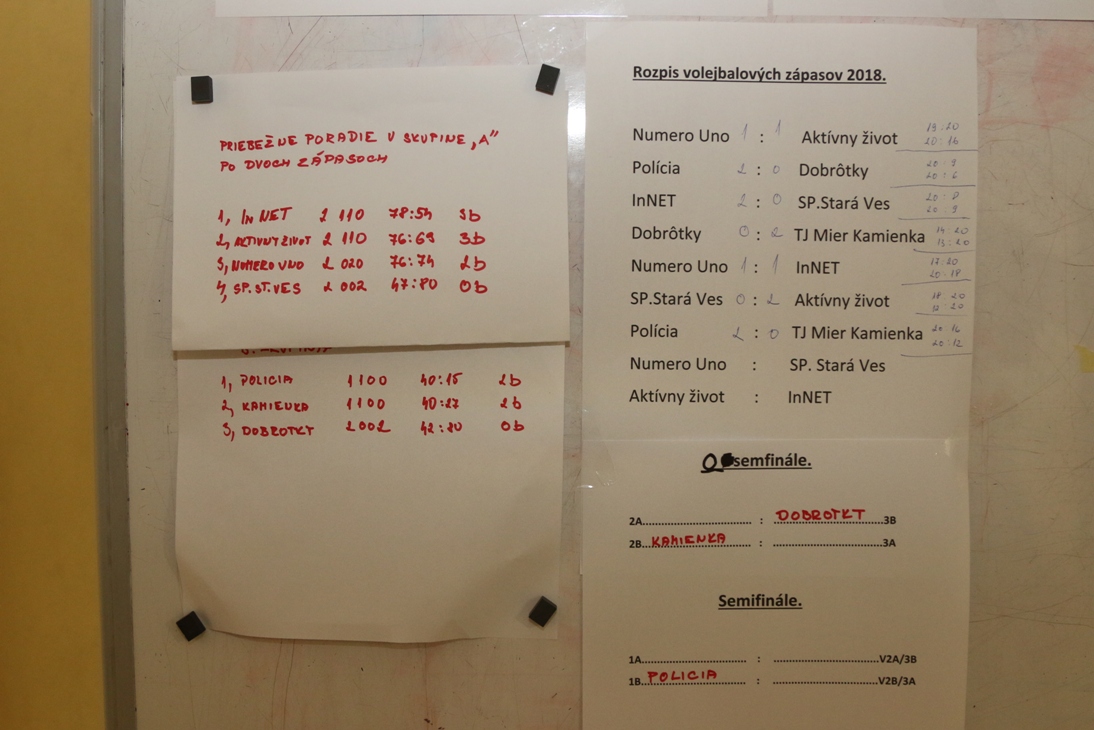 PRIEBEŽNE PORADIE V SKUPINE „A"
PO DVOCH ZÁPASOCH
1, IN NET 2 110 78:54 3b
2, AKTIVNY ŽIVOT 2 110 76:69 3b
3, NUMERO UNO 2 020 76:74 2b
4, SP.ST.VES 2 002 47:80 0b
1, POLICIA 1100 40:15 2b
2, KAMIENKA 1100 40:27 2b
3, DOBROTKY 2002 42:80 0b
Rozpis volejbalových zápasov 2018.
Numero Uno 1 : 1 Aktívny život 19:20
20:16
Polícia 2 : 0 Dobrôtky 20:9
20:6
InNET 2 : 0 SP.Stará Ves 20:8
20:9
Dobrôtky 0 : 2 TJ Mier Kamienka 14:20
13:20
Numero Uno 1 : 1 InNET 17:20
20:18
SP.Stará Ves 0 : 2 Aktívny život 18:20
12:20
Polícia 2 : 0 TJ Mier Kamienka 20:16
20:12
Numero Uno : SP. Stará Ves
Aktívny život : InNET
semfinále.
2A : DOBROTKY 3B
2B KAMIENKA : 3A
Semifinále.
1A : V2A/3B
1B POLICIA : V2B/3A